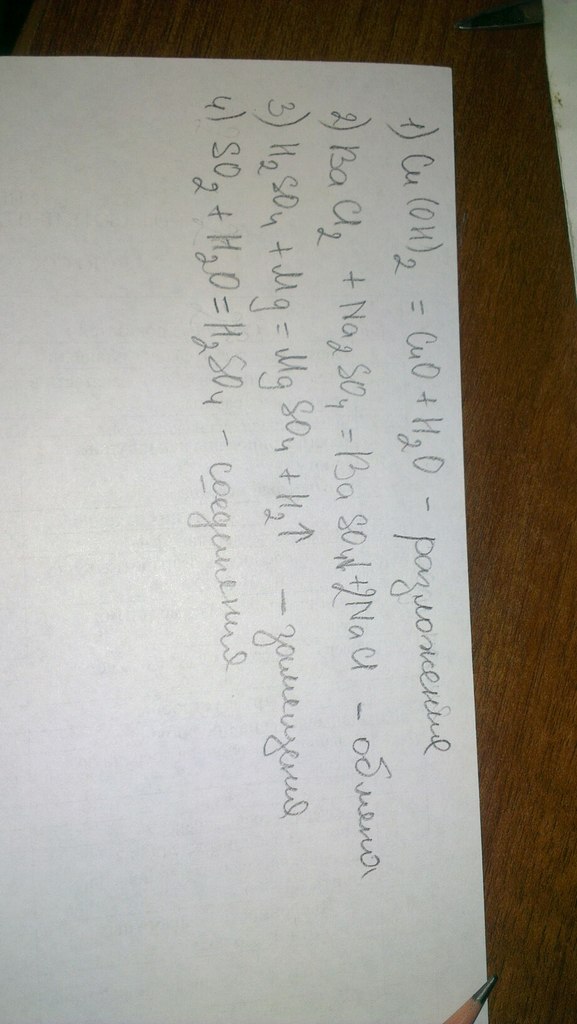 1) Cu(OH)₂ = CuO + H₂O - разложения
2) BaCl₂ + Na₂SO₄ = BaSO₄↓+2NaCl - обмена
3) H₂SO₄ + Mg = MgSO₄ + H₂↑ - замещения
4) SO₂ + H₂O = H₂SO₄ - соединения